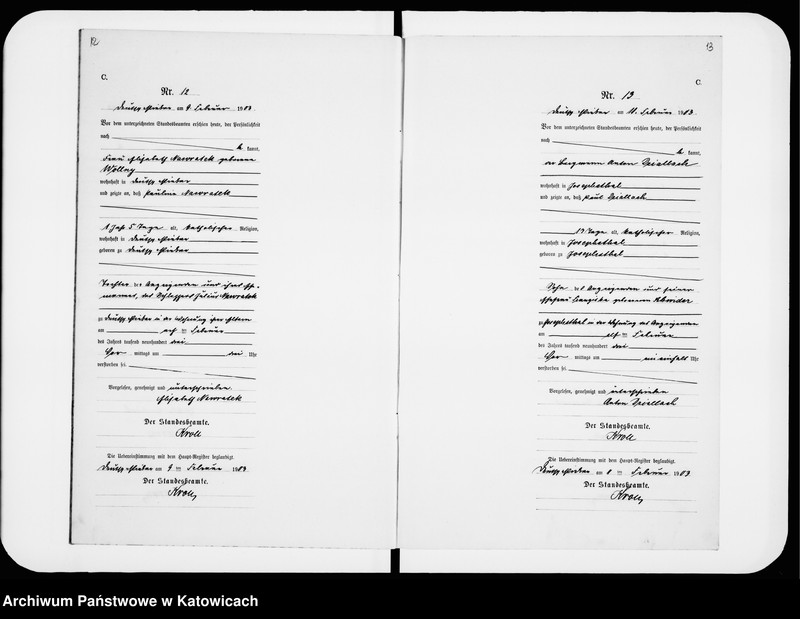 12
C.
Nr. 12
am 9. Februar 1903.
Vor dem unterzeichneten Standesbeamten erschien heute, der Persönlichkeit
nach
kannt,
Frau Elisabeth Nawratek geborene
Wollny
wohnhaft in Deutsch
und zeigte an, daß Pauline Nawratek
1 Jahr 5 Tage alt, katholischer Religion,
wohnhaft in Deutsch
geboren zu Deutsch
Tochter der Anzeigenden und ihres Ehe-
mannes, des Schlossers Julius Nawratek
zu Deutsch in der Wohnung ihrer Eltern
am ten Februar
des Jahres tausend neunhundert drei
Vor mittags um drei Uhr
verstorben sei.
Vorgelesen, genehmigt und unterschrieben
Elisabeth Nawratek
Der Standesbeamte.
Kroll
Die Uebereinstimmung mit dem Haupt-Register beglaubigt
am 9 ten Februar 1903.
Der Standesbeamte.
Kroll
13
C.
Nr. 13
am 11. Februar 1903.
Vor dem unterzeichneten Standesbeamten erschien heute, der Persönlichkeit
nach
kannt,
der Bergmann Anton
wohnhaft in Josephsthal
und zeigte an, daß Paul
13 Tage alt, katholischer Religion,
wohnhaft in Josephsthal
geboren zu Josephsthal
Sohn des Anzeigenden und seiner
Ehefrau geborenen
zu Josephsthal in der Wohnung des Anzeigenden
am elf ten Februar
des Jahres tausend neunhundert drei
Vor mittags um Uhr
verstorben sei.
Vorgelesen, genehmigt und unterschrieben
Anton
Der Standesbeamte.
Kroll
Die Uebereinstimmung mit dem Haupt-Register beglaubigt.
am ten Februar 1903
Der Standesbeamte.
Kroll
Archiwum Państwowe w Katowicach